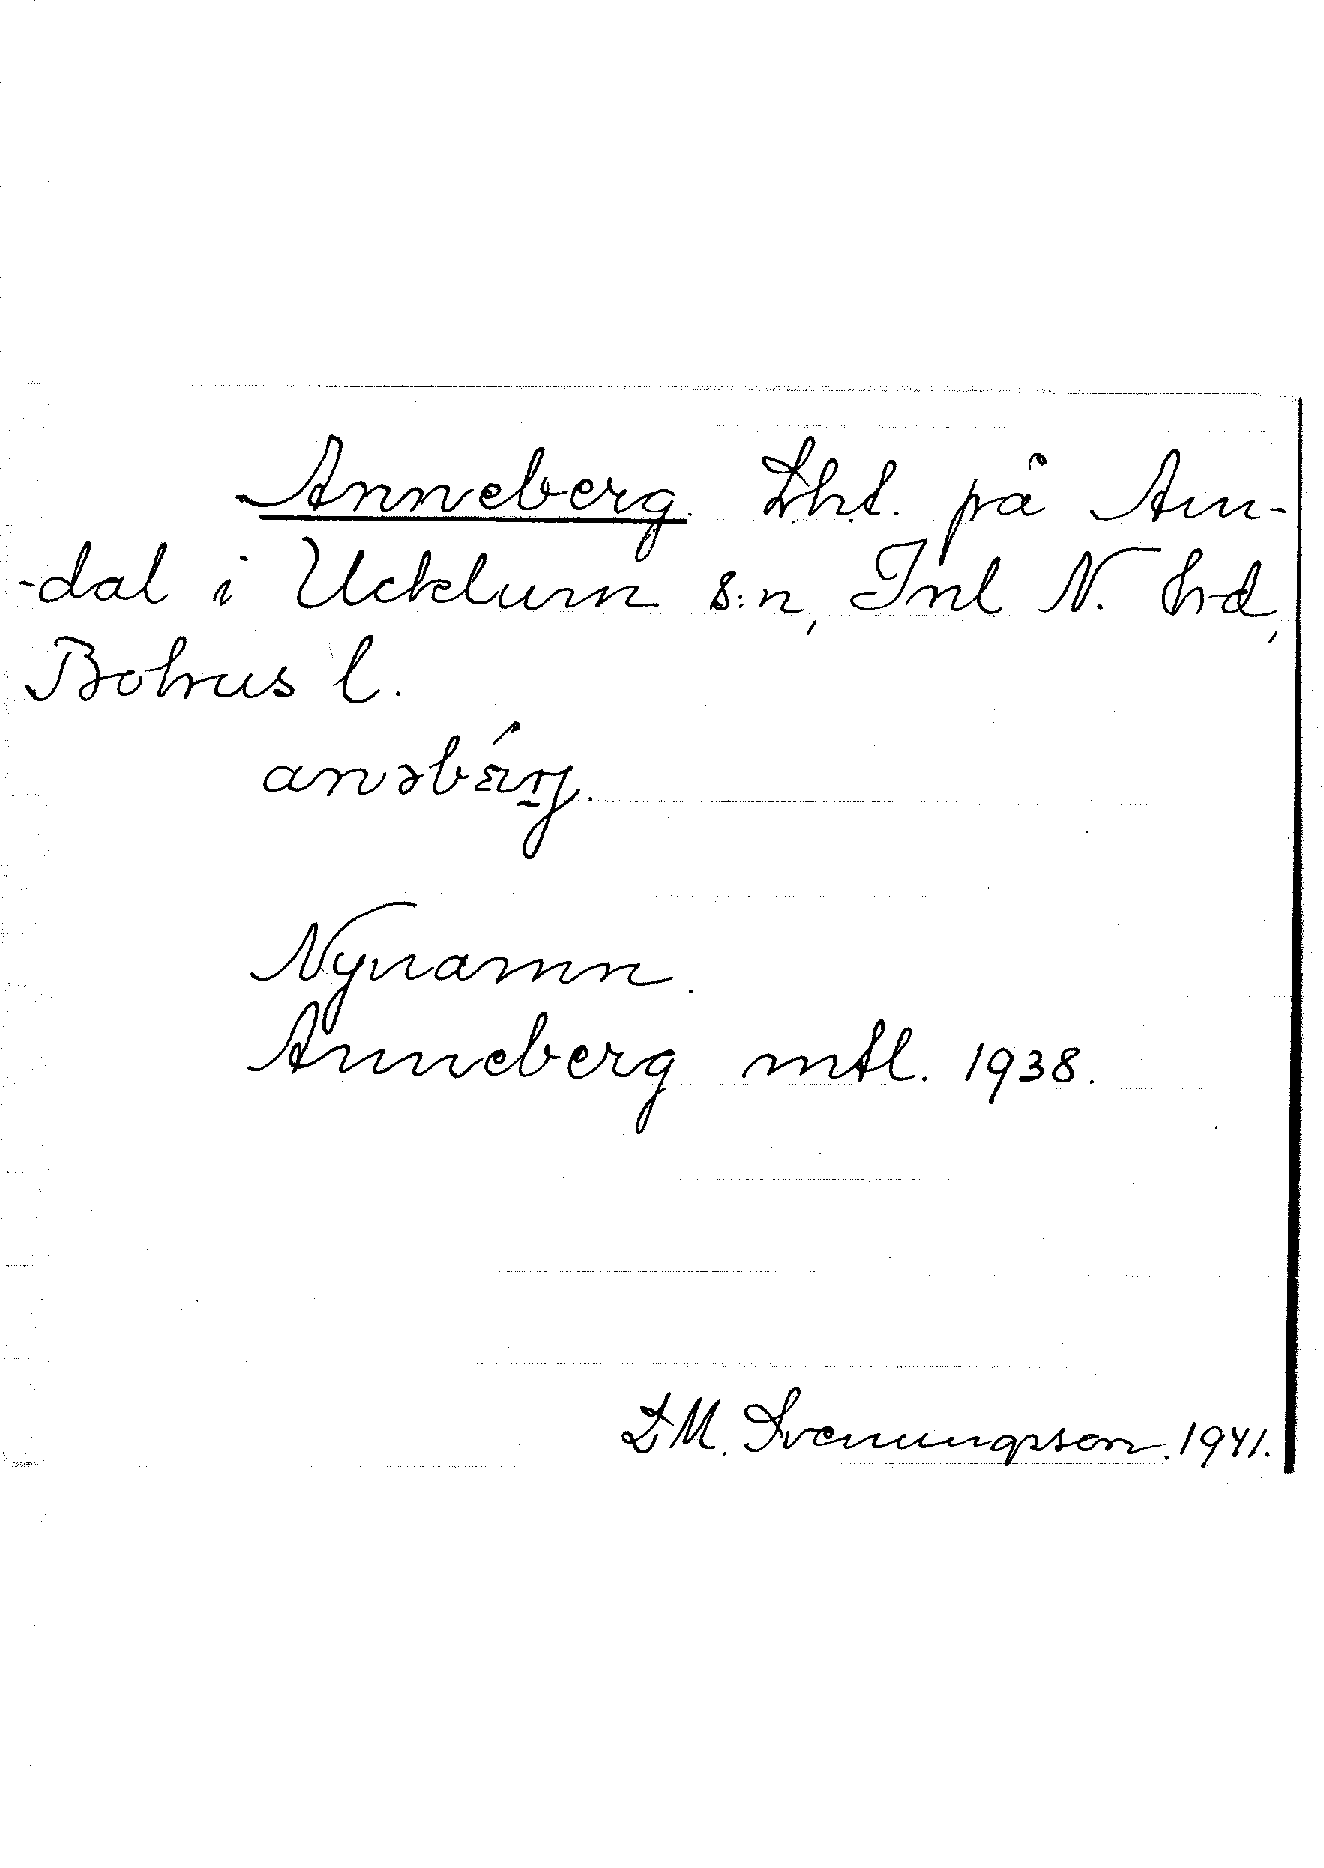 Anneberg. Lht. på Am-
-dal i Ucklum s:n, Inl N. hd,
Bohus l.
anəbærj.
Nynamn.
Anneberg mtl. 1938.
D M. Svenungsson. 1941.